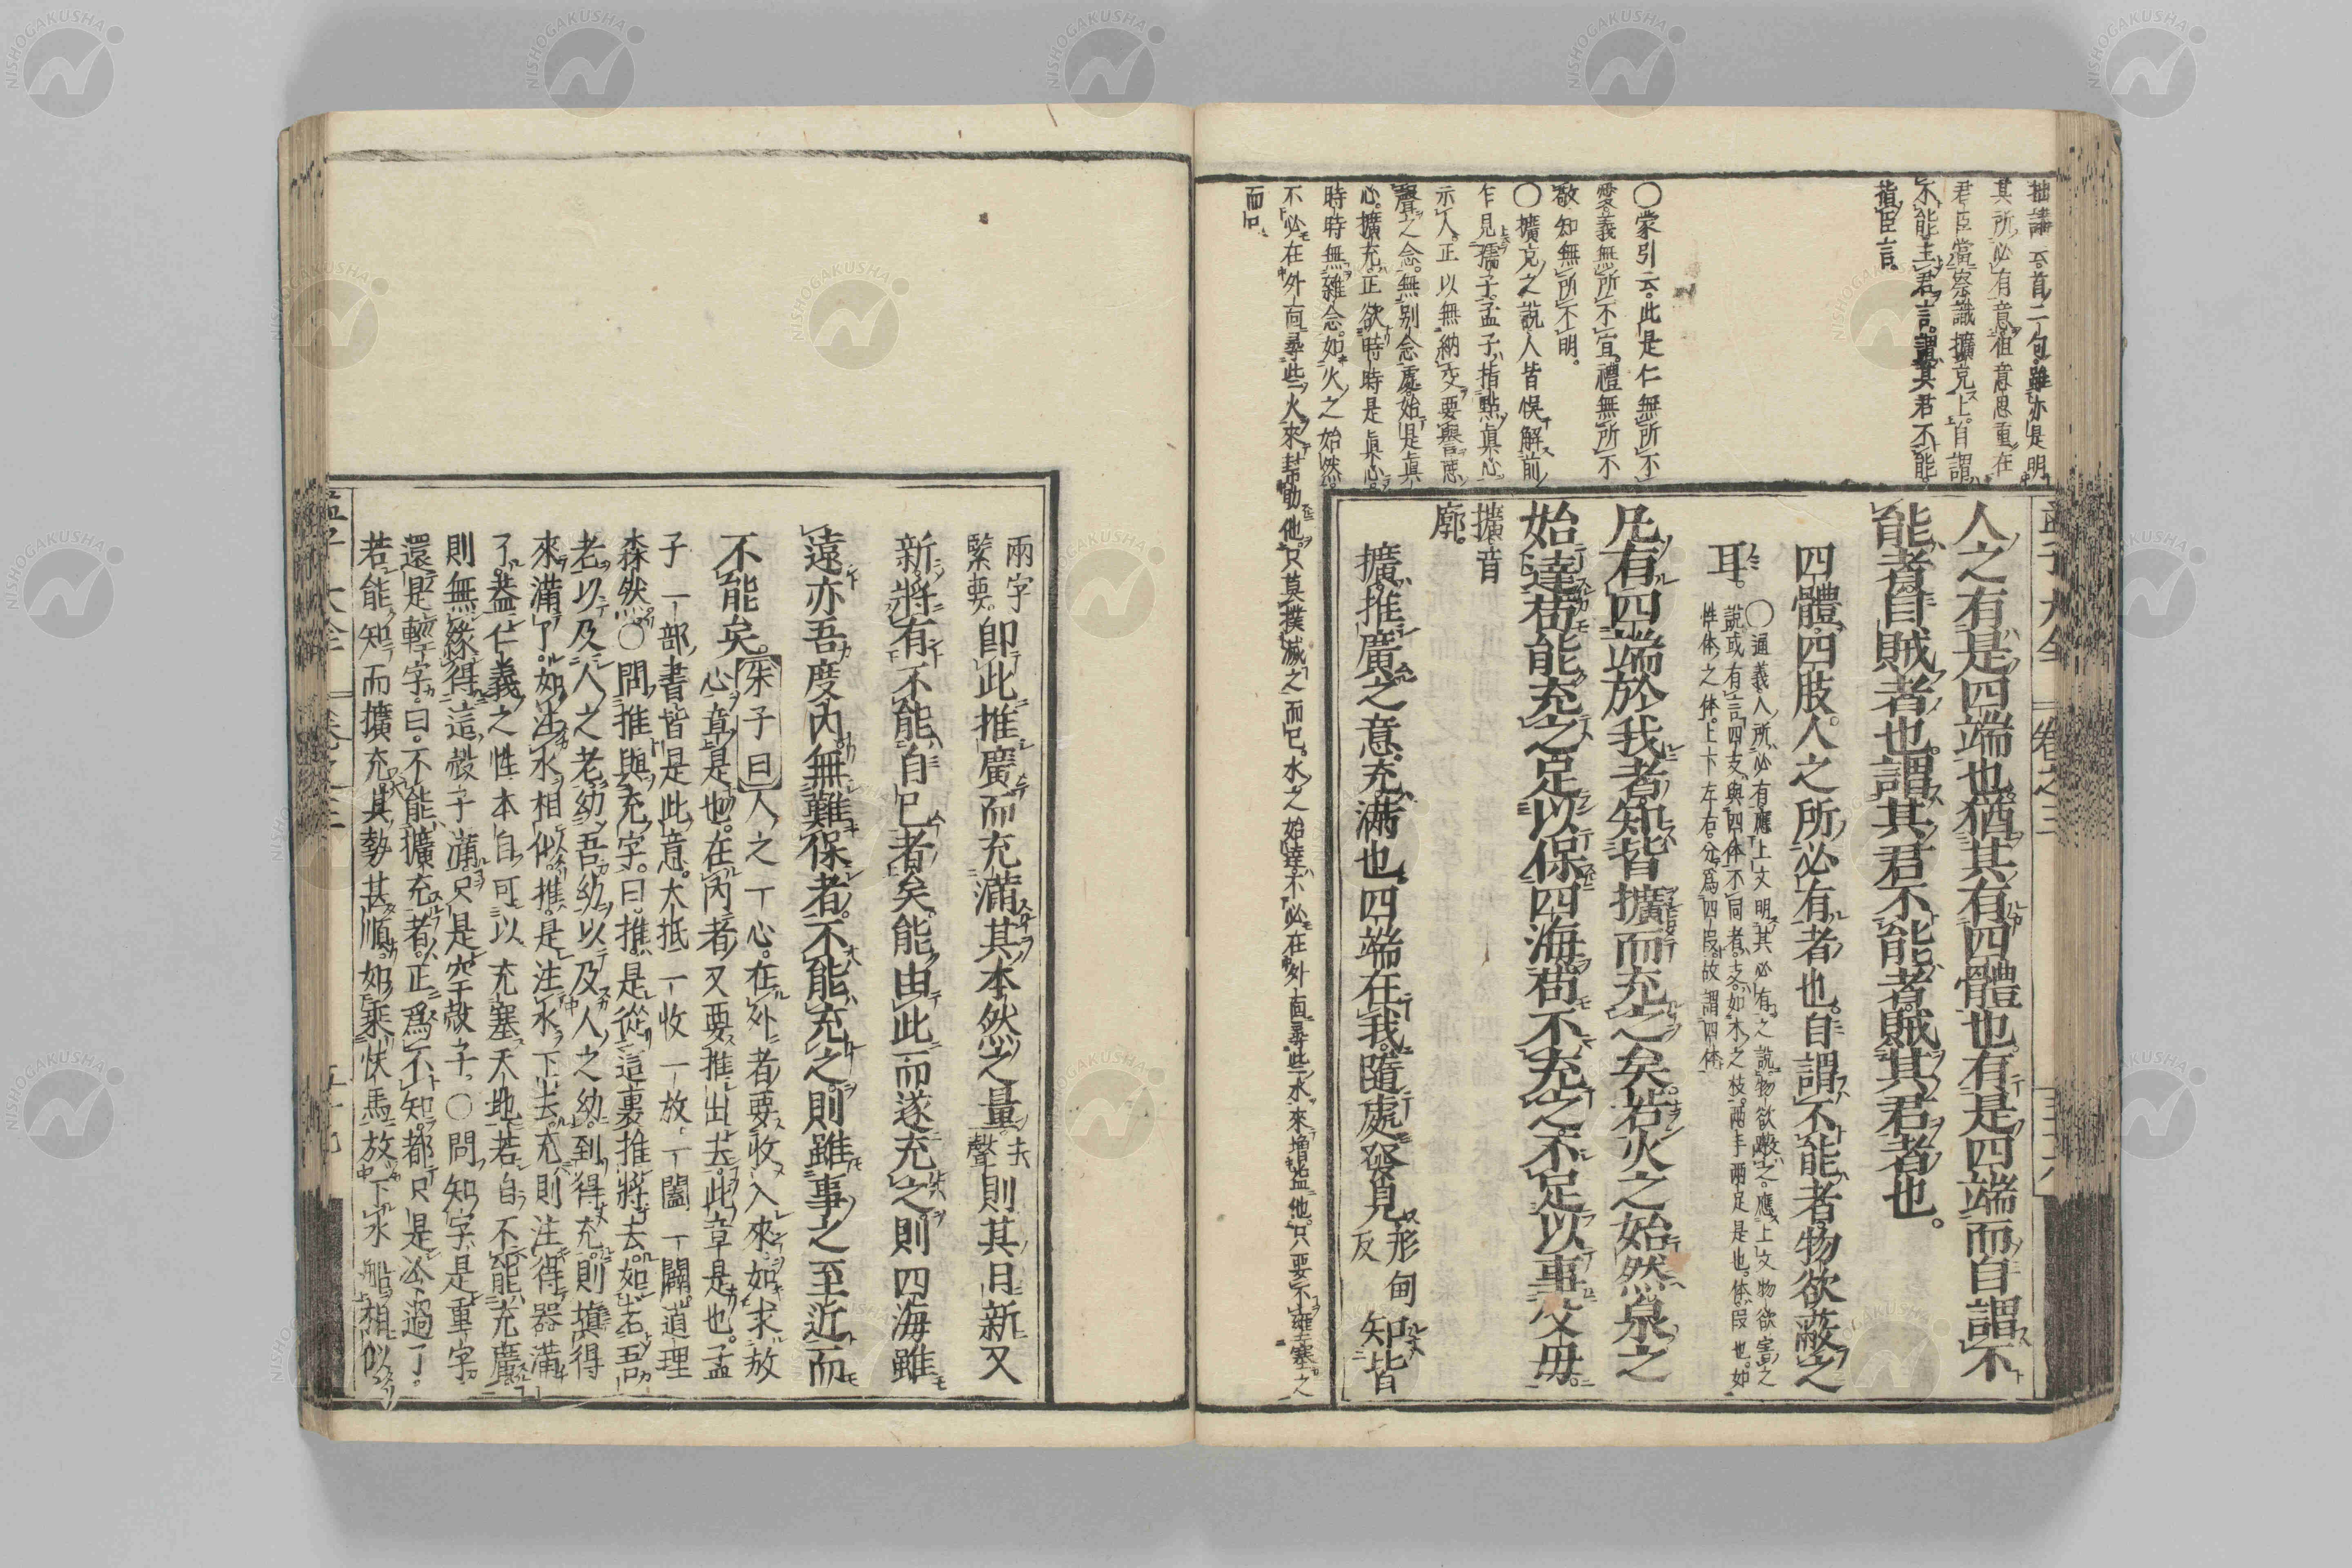 拙講云首二句雖亦是明
其所必有意狙意思重在
君臣當察識擴充上自謂
不能主君言謂其君不能
指臣言
〇蒙引云此是仁無所不
愛義無所不宜禮無所不
敬知無所不明
〇擴充之說人皆悞解前
乍見孺子孟子指點眞心
示人正以無納交要譽惡
聲之念無別念處始是眞
心擴充正欲時時是眞心
時時無雜念如火之始然
不必在外面尋些火來幇助他只莫撲滅之而已水之始達不必在外面尋些水來增益他只要不壅塞之
而已
孟子大全 卷之三
人之有是四端也猶其有四體也有是四端而自謂不
能者自賊者也謂其君不能者賊其君者也
四體四肢人之所必有者也自謂不能者物欲蔽之
耳
〇通義人所必有應上文明其必有之說物欲蔽之應上文物欲害之
說或有言四支與四体不同者支如木之枝兩手兩足是也体段也如
性体之体上下左右分爲四段故謂四体
凡有四端於我者知皆擴而充之矣若火之始然泉之
始達苟能充之足以保四海苟不充之不足以事父母
擴音
廓
擴推廣之意充滿也四端在我隨處發見
形甸
反
知皆
兩字
緊要
卽此推廣而充滿其本然之量
去
聲
則其日新又
新將有不能自已者矣能由此而遂充之則四海雖
遠亦吾度內無難保者不能充之則雖事之至近而
不能矣
朱子曰人之一心在外者要收入來如求放
心章是也在內者又要推出去此章是也孟
子一部書皆是此意大抵一收一放一闔一闢道理
森然〇問推與充字曰推是從這裏推將去如老吾
老以及人之老幼吾幼以及人之幼到得充則塡得
來滿了如注水相似推是注水下去充則注得器滿
了蓋仁義之性本自可以充塞天地若自不能充廣
則無緣得這殼子滿只是空殼子〇問知字是重字
還是輕字曰不能擴充者正爲不知都只是冷過了
若能知而擴充其勢甚順如乘快馬放下水船相似
孟子大全 卷之三 五十九